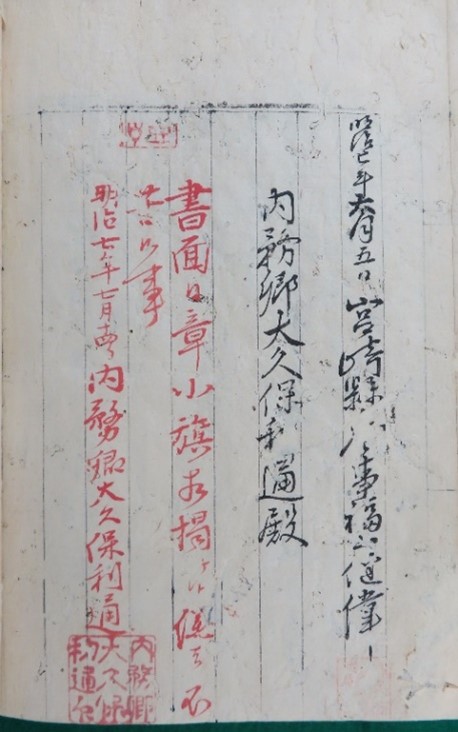 明治七年六月五日宮崎縣参事福山健偉
内務卿大久保利通殿
書面日章小旗相掲候儀ハ不
事
明治七年七月 内務卿大久保利通
内務卿
大久保
利通印